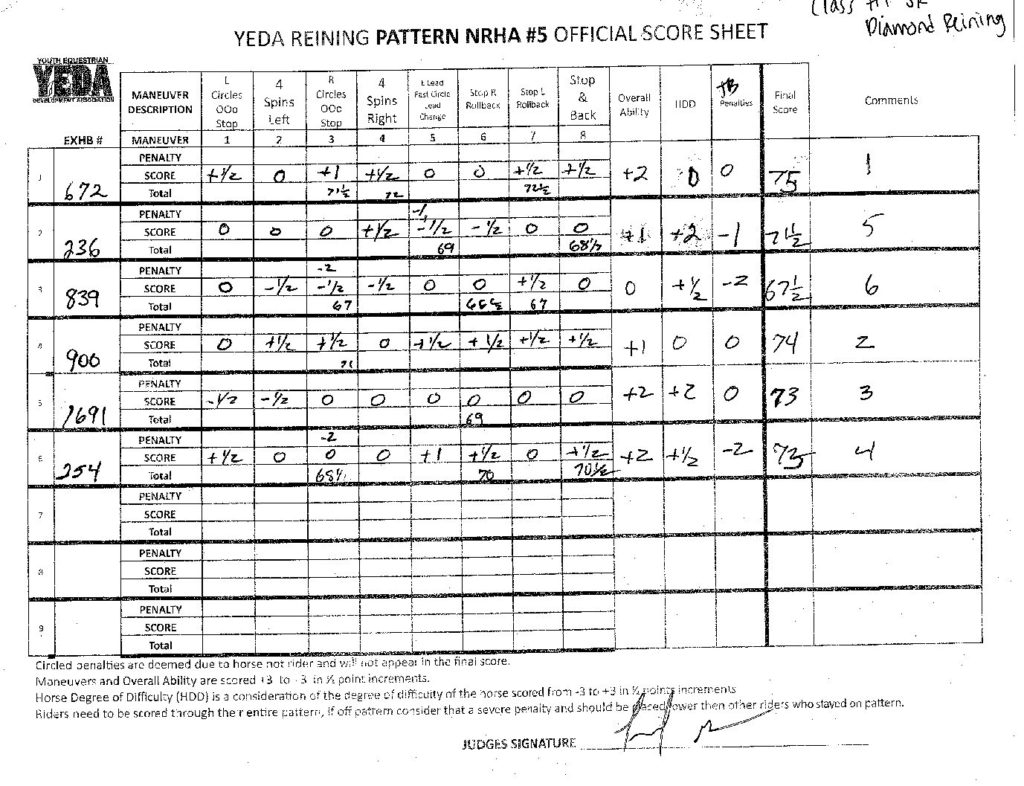 Class H1 JR
Diamond Reining
YEDA REINING PATTERN NRHA #5 OFFICIAL SCORE SHEET
YOUTH EQUESTRIAN
YEDA
DEVELOPMENT ASSOCIATION
EXHB # MANEUVER DESCRIPTION L Circles OOo Stop 4 Spins Left R Circles OOo Stop 4 Spins Right L Lead Fast Circle Lead Change Stop R Rollback Stop L Rollback Stop & Back Overall Ability HDD TB Penalties Final Score Comments
MANEUVER 1 2 3 4 5 6 7 8
1 672 PENALTY
SCORE +½ 0 +1 +½ 0 0 +½ +½ +2 0 0 75 1
Total 71½ 72 72½
2 236 PENALTY -1
SCORE 0 0 0 +½ -½ -½ 0 0 +1 +2 -1 71½ 5
Total 69 68½
3 839 PENALTY -2
SCORE 0 -½ -½ -½ 0 0 +½ 0 0 +½ -2 67½ 6
Total 67 66½ 67
4 900 PENALTY
SCORE 0 +½ +½ 0 +½ +½ +½ +½ +1 0 0 74 2
Total 71
5 1691 PENALTY
SCORE -½ -½ 0 0 0 0 0 0 +2 +2 0 73 3
Total 69
6 254 PENALTY -2
SCORE +½ 0 0 0 +1 +½ 0 +½ +2 +½ -2 73 4
Total 68½ 70 70½
7 PENALTY
SCORE
Total
8 PENALTY
SCORE
Total
9 PENALTY
SCORE
Total
Circled penalties are deemed due to horse not rider and will not appear in the final score.
Maneuvers and Overall Ability are scored +3 to -3 in ½ point increments.
Horse Degree of Difficulty (HDD) is a consideration of the degree of difficulty of the horse scored from -3 to +3 in ½ point increments
Riders need to be scored through their entire pattern, if off pattern consider that a severe penalty and should be placed lower then other riders who stayed on pattern.
JUDGES SIGNATURE